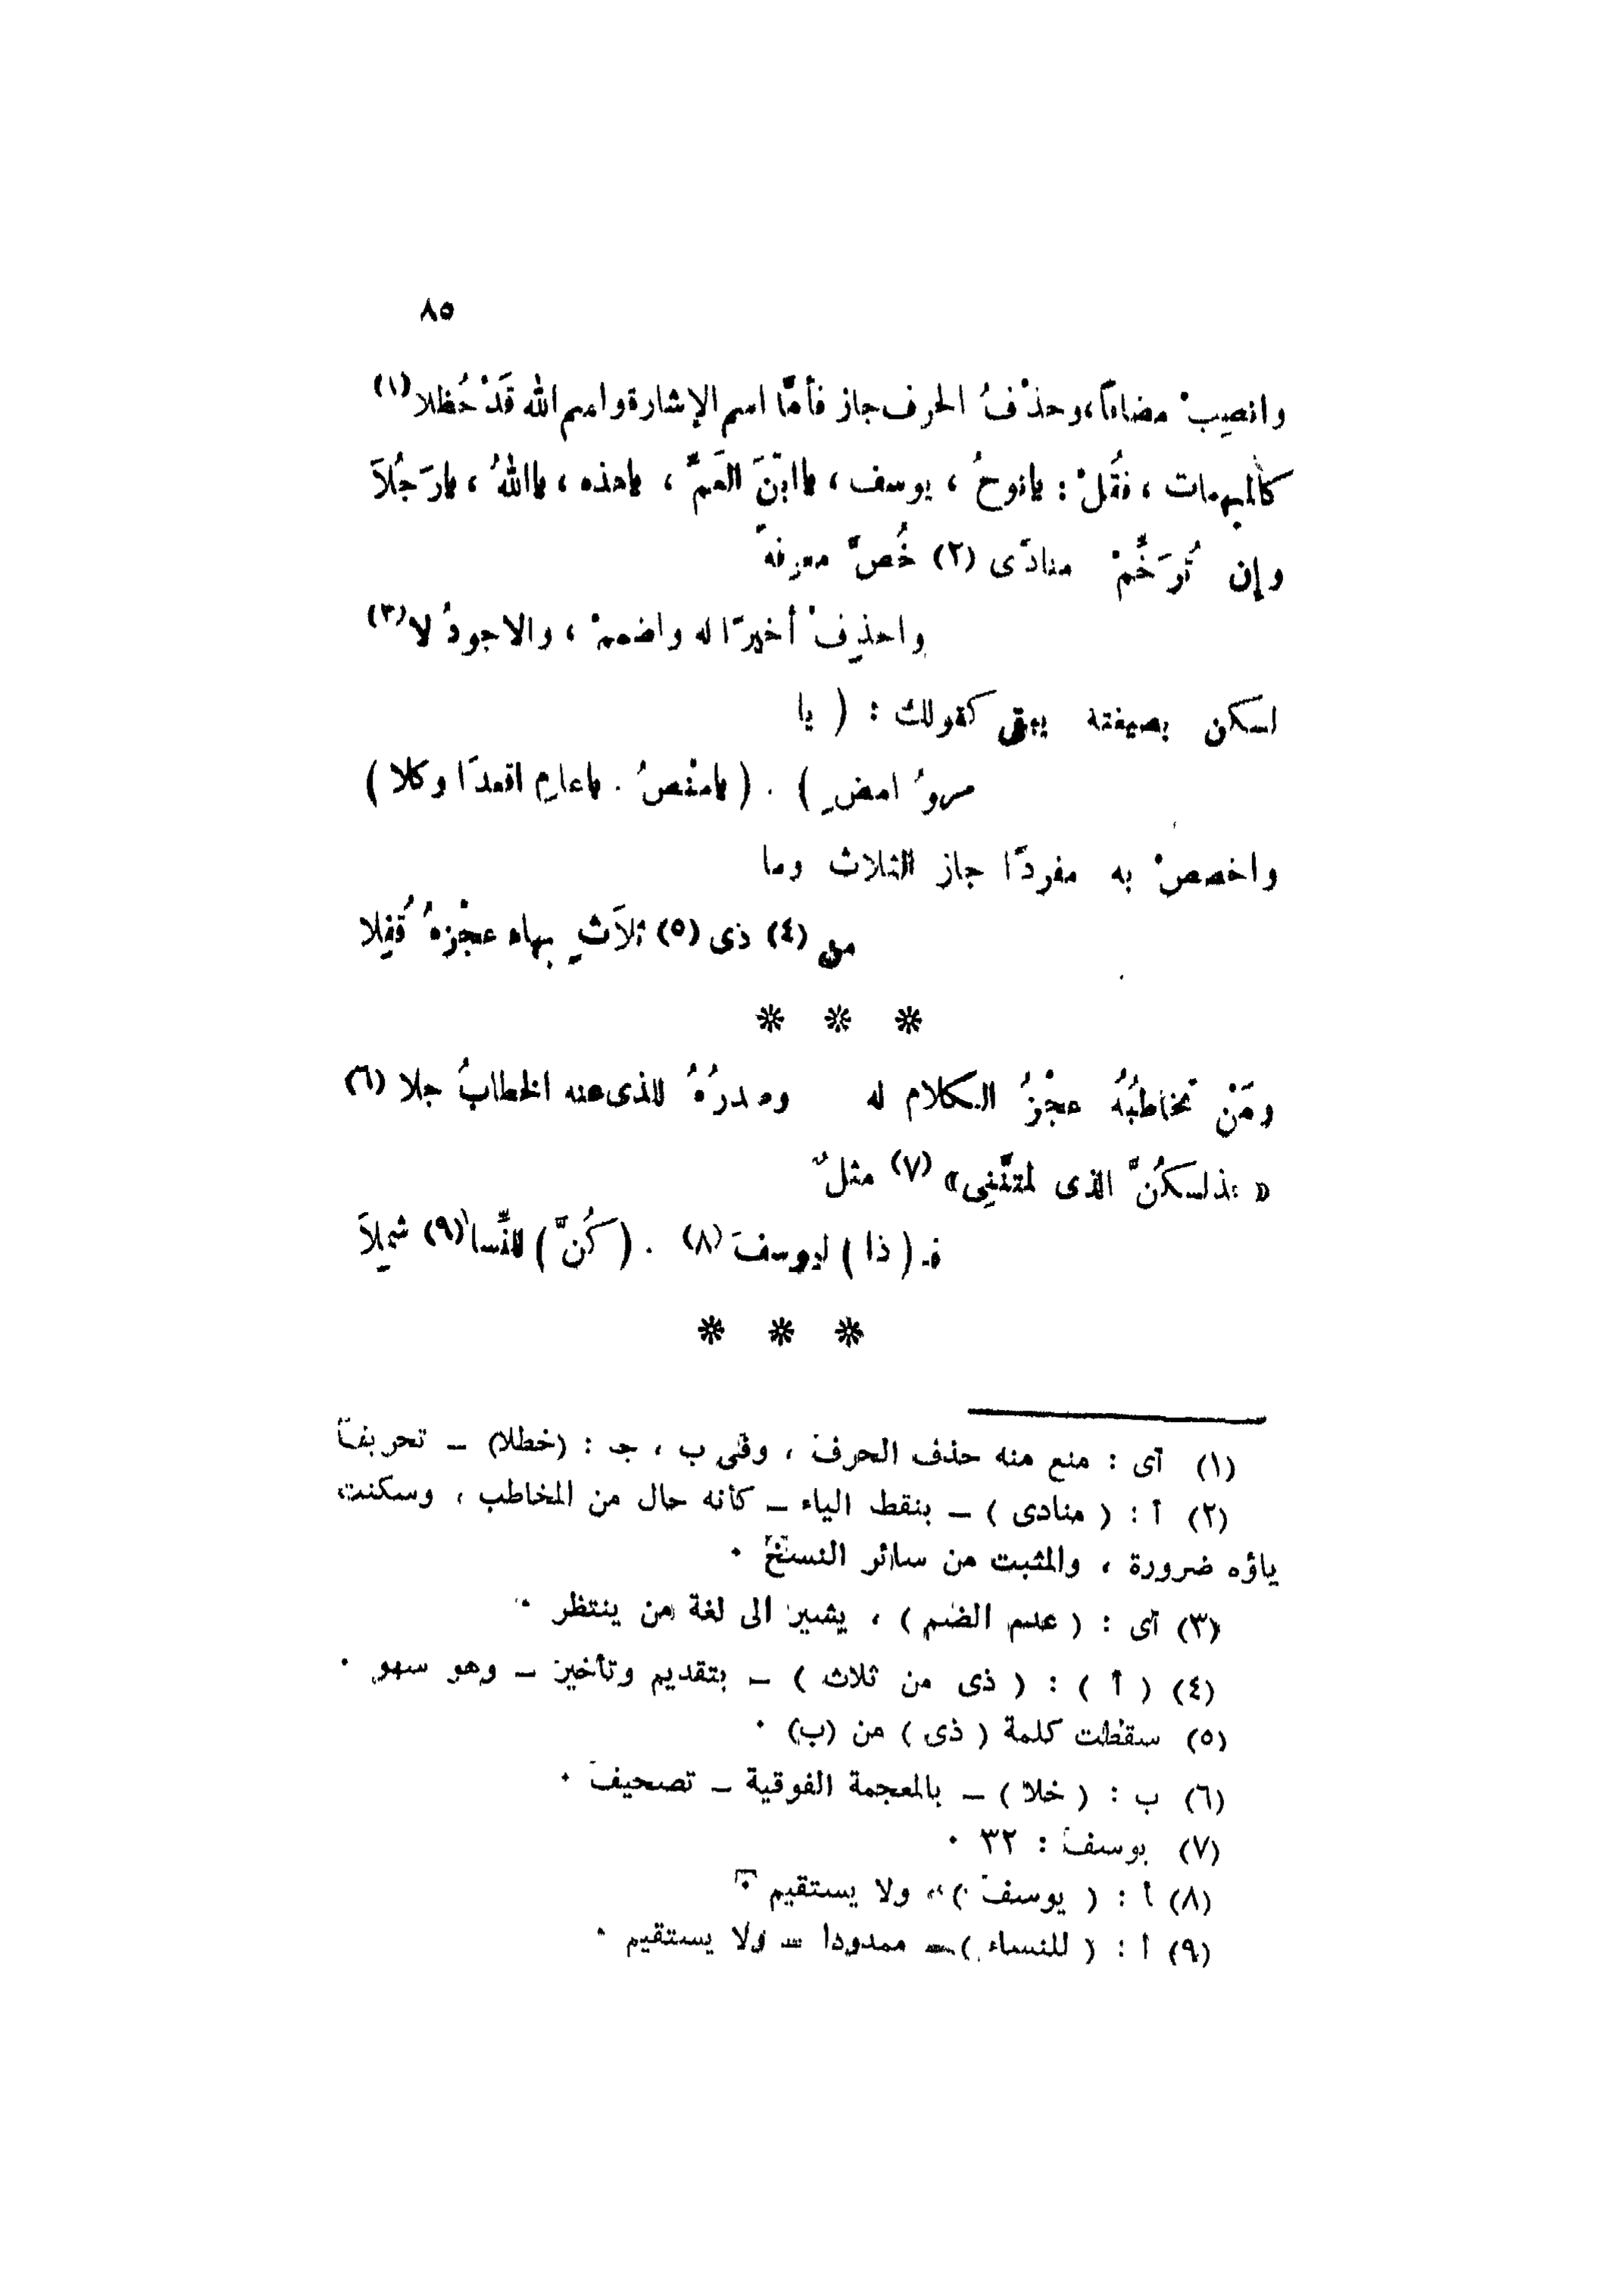 ٨٥
وانصبْ مضافاً، وحذْفُ الحرف جاز فأمَّا اسم الإشارة واسم الله قَدْ حُظلا (١)
كالمبهمات ، فقُلْ : يانوحُ ، يوسف ، ياابْنَ العَمِّ ، ياهذه ، ياأللهُ ، يارَجُلاَ
وإن تُرَخِّمْ منادًى (٢) خُصَّ معرفةً
واحذِفْ أخيرًا له واضممْ ، والاجودُ لا (٣)
لسكن بصيغته يبقى كقولك : ( يا
مروُ امضِ ) . ( يامنْصُ . ياعامِ اقعدَا وكلا )
واخصصْ به مفردًا جاز الثلاث وما
من (٤) ذى (٥) ثلاَثٍ بهاء عجْزهُ قُفِلا
* * *
ومَنْ تخاطبُهُ عجْزُ الكلام له وصدرُهُ للذى عنه الخطابُ جلا (٦)
« فذلسكُنَّ الذى لمتنَّنِى» (٧) مثلٌ
فـ ( ذا ) ليوسفَ (٨) . ( كُنَّ ) للنِّسا (٩) شمِلاَ
* * *
(١) أى : منع منه حذف الحرف ، وفى ب ، جـ : (خطلا) – تحريف
(٢) أ : ( منادى ) – بنقط الياء – كأنه حال من المخاطب ، وسكنت
ياؤه ضرورة ، والمثبت من سائر النسخ ٠
(٣) أى : ( عدم الضم ) ، يشير الى لغة من ينتظر ٠
(٤) ( أ ) : ( ذى من ثلاث ) – بتقديم وتأخير – وهو سهو ٠
(٥) سقطت كلمة ( ذى ) من (ب) ٠
(٦) ب : ( خلا ) – بالمعجمة الفوقية – تصحيف ٠
(٧) يوسف : ٣٢ ٠
(٨) أ : ( يوسف ) ولا يستقيم ٠
(٩) أ : ( للنساء ) – ممدودا – ولا يستقيم ٠